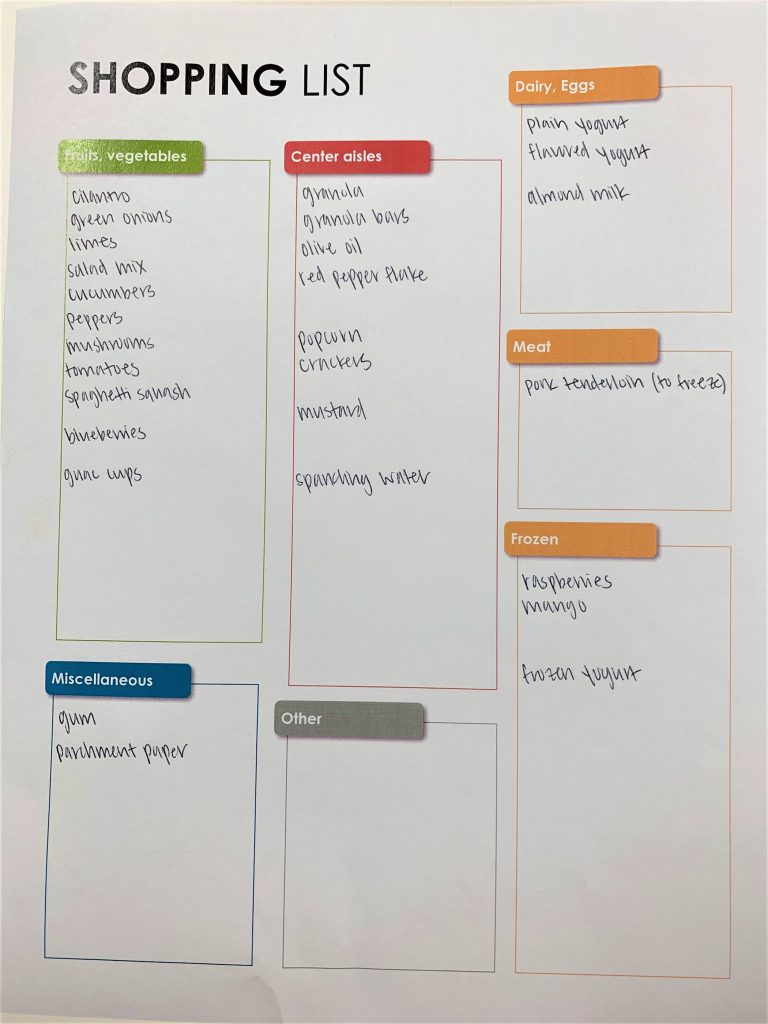 SHOPPING LIST
Fruits, vegetables
cilantro
green onions
limes
salad mix
cucumbers
peppers
mushrooms
tomatoes
spaghetti squash
blueberries
guac cups
Center aisles
granola
granola bars
olive oil
red pepper flake
popcorn
crackers
mustard
sparkling water
Dairy, Eggs
plain yogurt
flavored yogurt
almond milk
Meat
pork tenderloin (to freeze)
Frozen
raspberries
mango
frozen yogurt
Miscellaneous
gum
parchment paper
Other